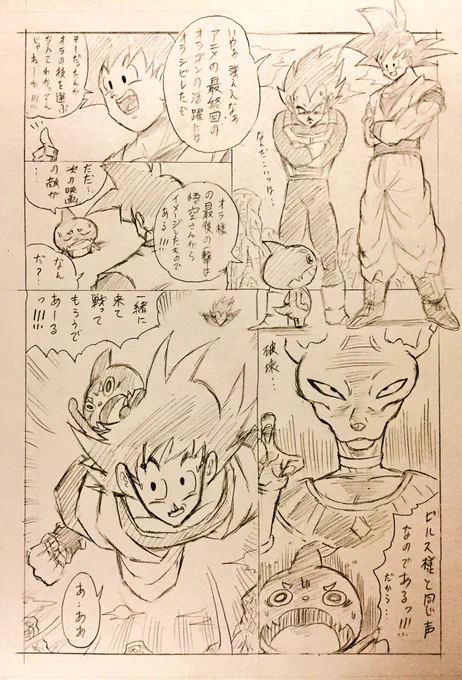 いやぁ強ええなぁ
アニメの最終回の
オラゴンの活躍には
オラシビレたぞ
なんだこいつは…
そーだったんか
オラの技を選ぶ
なんてわかってん
じゃねーか!!!
オラ様
の最後の一撃は
悟空さんから
イメージしたもので
ある!!!
ただ…
次の映画
の敵が
なん
だ?…
破壊…
ビルス様と同じ声
なのであるっ!!!
だから…
一緒に
来て
戦って
もらうで
あーる
っ!!!!
あ…ああ